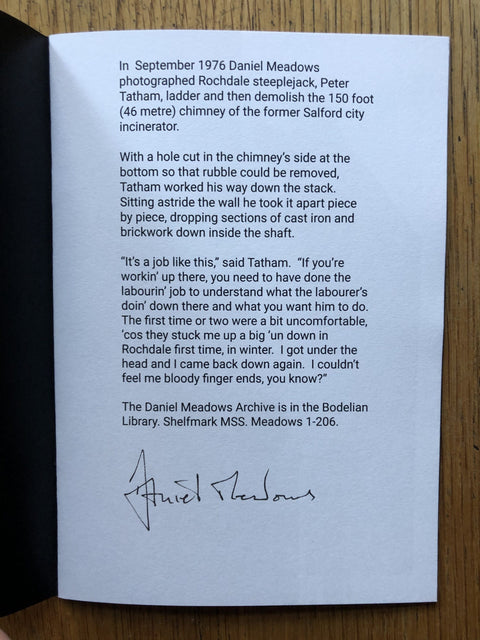 In September 1976 Daniel Meadows
photographed Rochdale steeplejack, Peter
Tatham, ladder and then demolish the 150 foot
(46 metre) chimney of the former Salford city
incinerator.
With a hole cut in the chimney's side at the
bottom so that rubble could be removed,
Tatham worked his way down the stack.
Sitting astride the wall he took it apart piece
by piece, dropping sections of cast iron and
brickwork down inside the shaft.
“It's a job like this,” said Tatham. “If you're
workin' up there, you need to have done the
labourin' job to understand what the labourer's
doin' down there and what you want him to do.
The first time or two were a bit uncomfortable,
'cos they stuck me up a big 'un down in
Rochdale first time, in winter. I got under the
head and I came back down again. I couldn't
feel me bloody finger ends, you know?”
The Daniel Meadows Archive is in the Bodelian
Library. Shelfmark MSS. Meadows 1-206.
Daniel Meadows